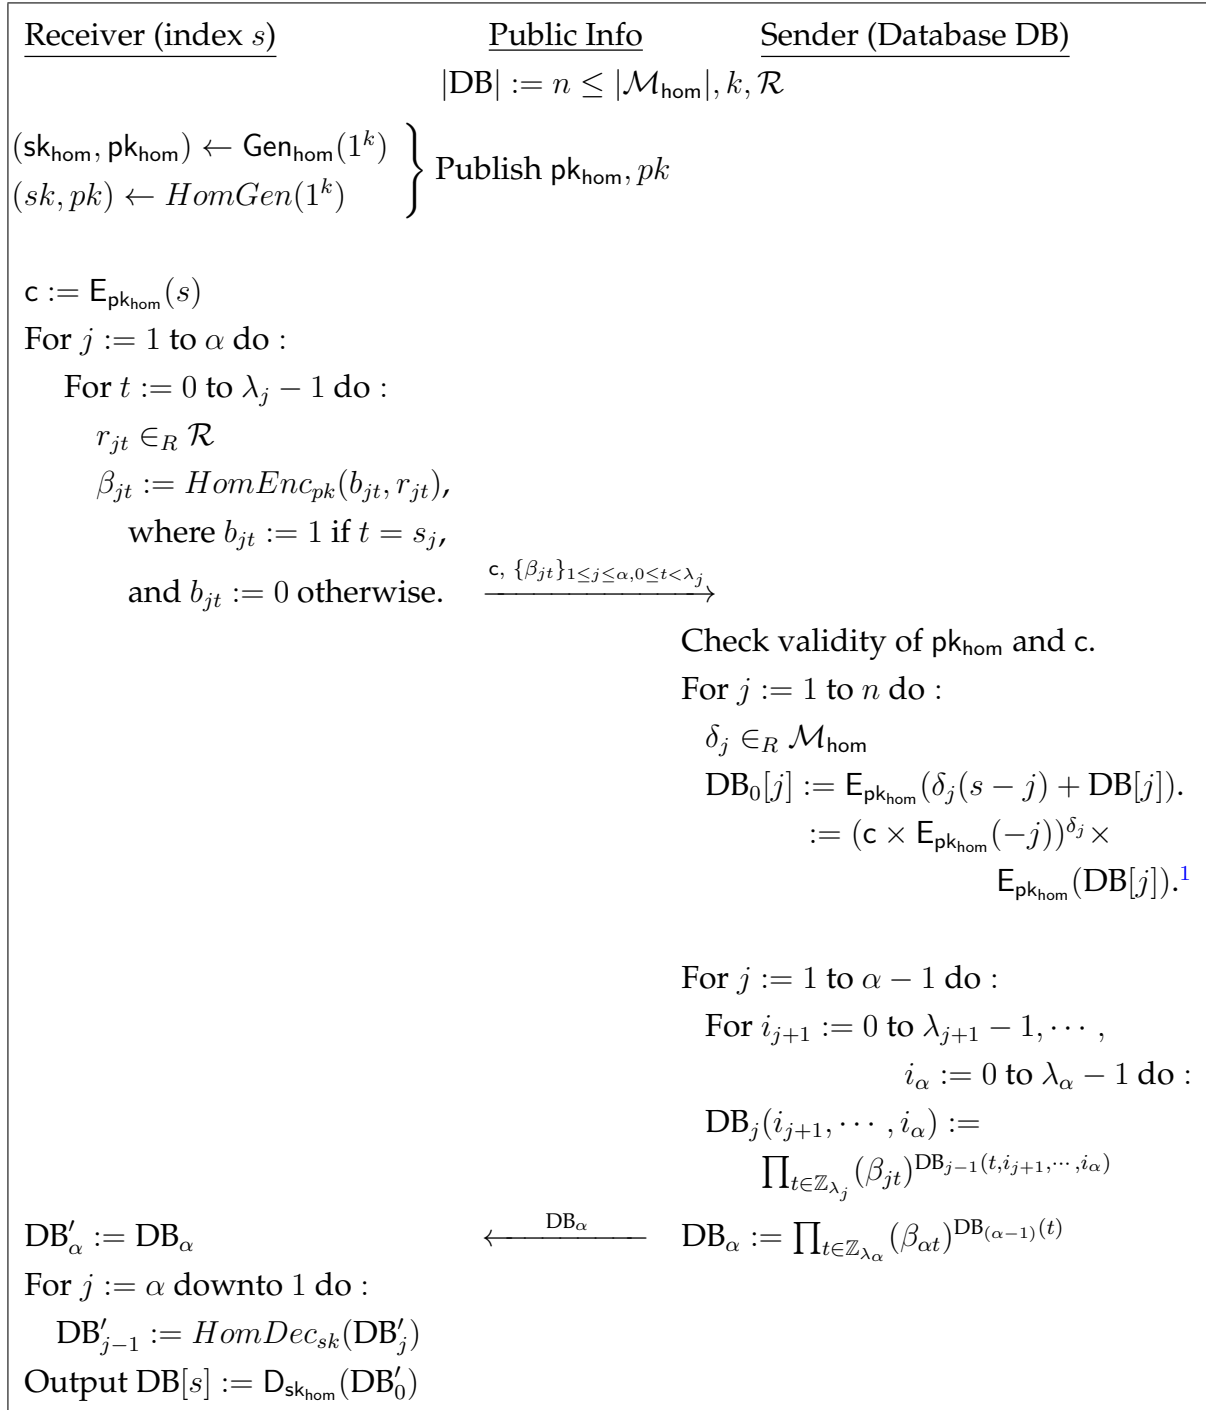 Receiver (index s) Public Info Sender (Database DB)
|DB| := n ≤ |ℳ_hom|, k, ℛ
(sk_hom, pk_hom) ← Gen_hom(1^k)
(sk, pk) ← HomGen(1^k)
} Publish pk_hom, pk
c := E_{pk_hom}(s)
For j := 1 to α do :
For t := 0 to λ_j − 1 do :
r_{jt} ∈_R ℛ
β_{jt} := HomEnc_{pk}(b_{jt}, r_{jt}),
where b_{jt} := 1 if t = s_j,
and b_{jt} := 0 otherwise. c, {β_{jt}}_{1≤j≤α,0≤t<λ_j} →
Check validity of pk_hom and c.
For j := 1 to n do :
δ_j ∈_R ℳ_hom
DB_0[j] := E_{pk_hom}(δ_j(s − j) + DB[j]).
:= (c × E_{pk_hom}(−j))^{δ_j} ×
E_{pk_hom}(DB[j]).^1
For j := 1 to α − 1 do :
For i_{j+1} := 0 to λ_{j+1} − 1, ⋯ ,
i_α := 0 to λ_α − 1 do :
DB_j(i_{j+1}, ⋯ , i_α) :=
∏_{t∈ℤ_{λ_j}} (β_{jt})^{DB_{j−1}(t,i_{j+1},⋯,i_α)}
DB′_α := DB_α ← DB_α DB_α := ∏_{t∈ℤ_{λ_α}} (β_{αt})^{DB_{(α−1)}(t)}
For j := α downto 1 do :
DB′_{j−1} := HomDec_{sk}(DB′_j)
Output DB[s] := D_{sk_hom}(DB′_0)